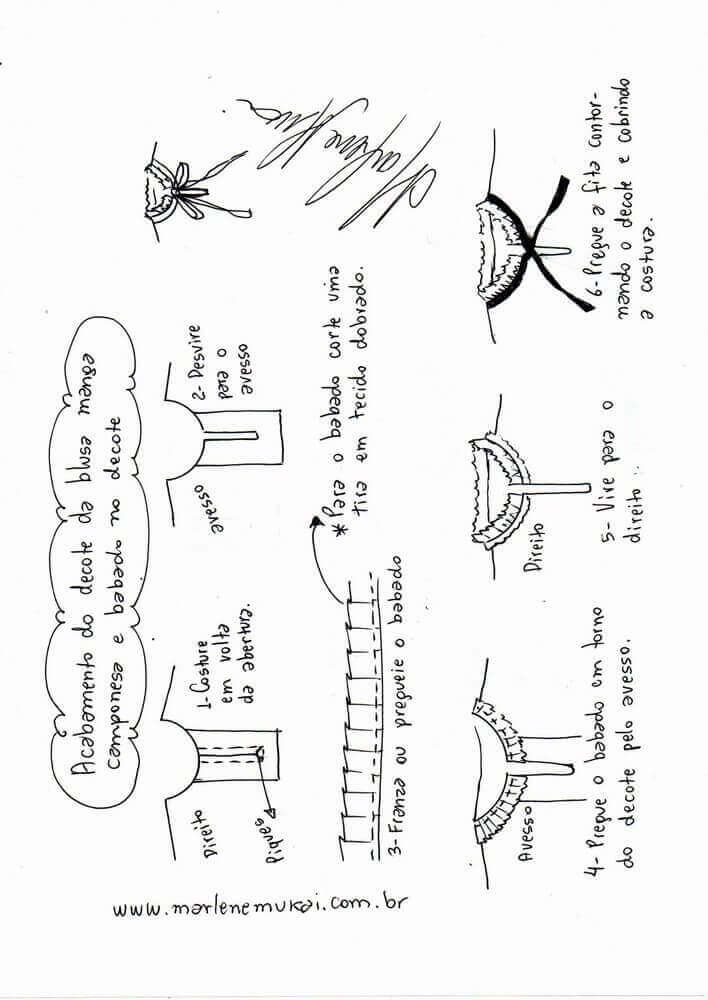 Acabamento do decote da blusa manga
camponesa e babado no decote
Direito
Piques
1-Costure
em volta
da abertura.
avesso
2- Desvire
para o
avesso
3- Franza ou pregueie o babado
*Para o babado corte uma
tira em tecido dobrado.
Marlene Mukai
Avesso
4- Pregue o babado em torno
do decote pelo avesso.
Direito
5- Vire para o
direito.
6-Pregue a fita contor-
nando o decote e cobrindo
a costura.
www.marlenemukai.com.br